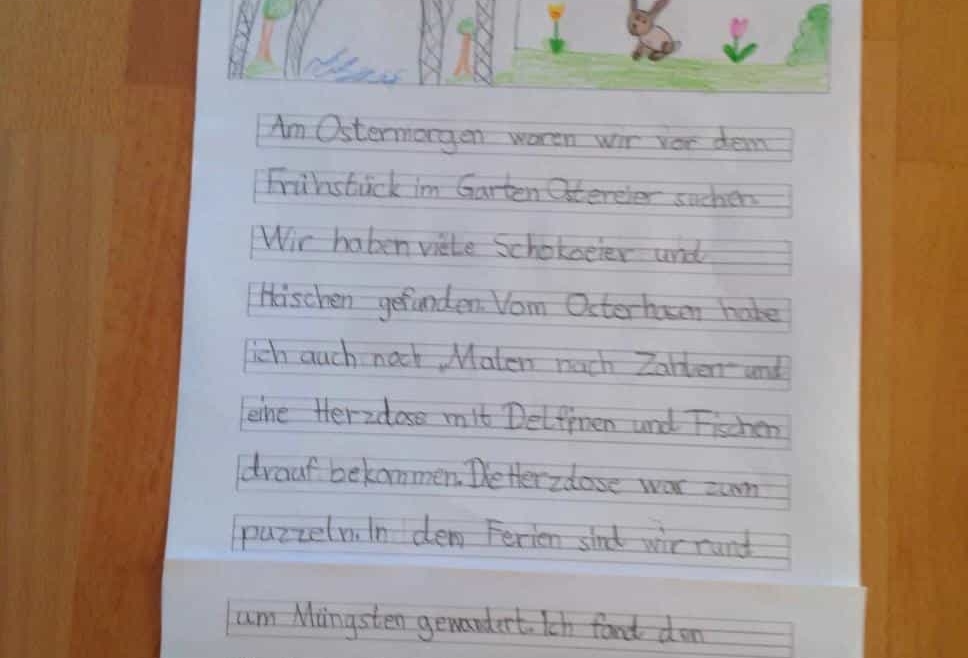 Am Ostermorgen waren wir vor dem
Frühstück im Garten Ostereier suchen
Wir haben viele Schokoeier und
Häschen gefunden. Vom Osterhasen habe
ich auch noch „Malen nach Zahlen" und
eine Herzdose mit Delfinen und Fischen
drauf bekommen. Die Herzdose war zum
puzzeln. In den Ferien sind wir rund
um Müngsten gewandert. Ich fand den